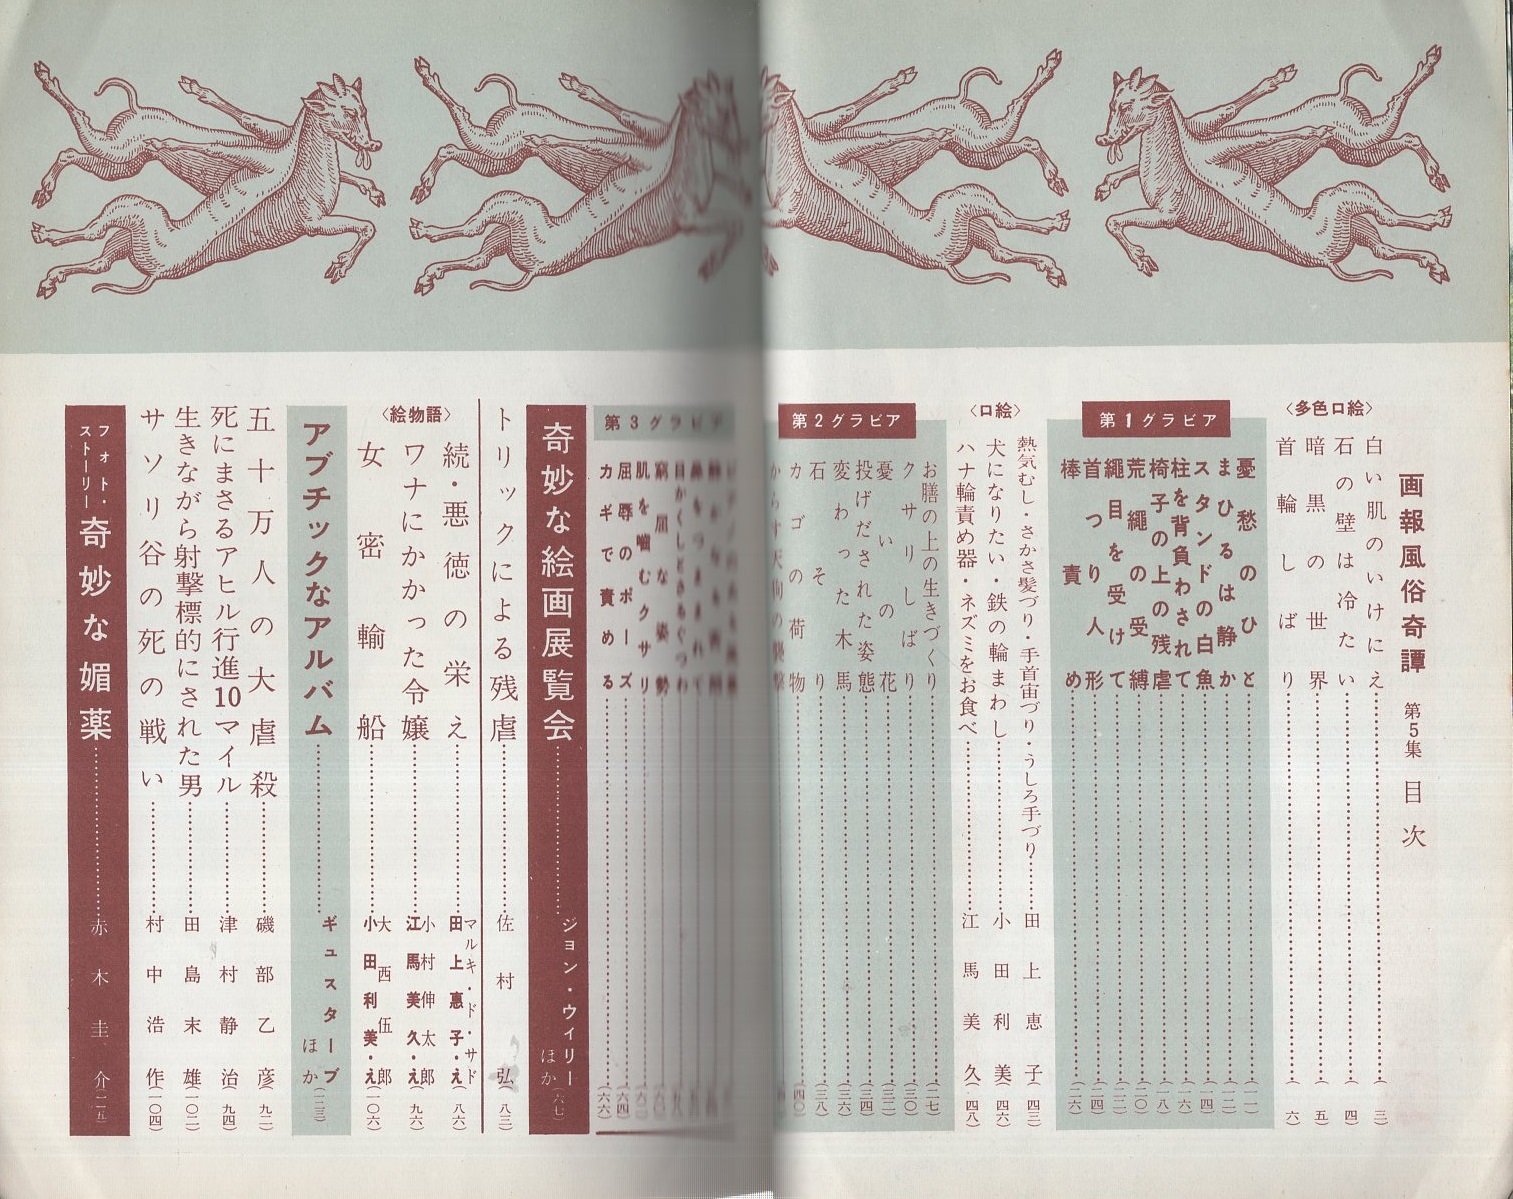 画報風俗奇譚 第5集 目次
〈多色口絵〉
白い肌のいけにえ(三)
石の壁は冷たい(四)
暗黒の世界(五)
首輪しばり(六)
第1グラビア
憂愁のひと(一一)
まひるは静か(一二)
スタンドの白魚(一四)
柱を背負わされて(一六)
椅子の上の残虐(一八)
荒繩の受縛(二〇)
繩目を受けて(二二)
首つり人形(二四)
棒責め(二六)
〈口絵〉
熱気むし・さかさ髪づり・手首宙づり・うしろ手づり 田上恵子(四三)
犬になりたい・鉄の輪まわし 小田利美(四六)
ハナ輪責め器・ネズミをお食べ 江馬美久(四八)
第2グラビア
お膳の上の生きづくり(二七)
クサリしばり(三〇)
憂いの花(三二)
投げだされた姿態(三四)
変わった木馬(三六)
石そり(三八)
カゴの荷物(四〇)
からす天狗の襲撃
第3グラビア
目かくしとさるぐつわ
窮屈な姿勢(六〇)
肌を噛むクサリ(六二)
屈辱のポーズ(六四)
カギで責める(六六)
奇妙な絵画展覧会 ジョン・ウィリー ほか(六七)
トリックによる残虐 佐村弘(八三)
〈絵物語〉
続・悪徳の栄え マルキ・ド・サド 田上恵子・え(八六)
ワナにかかった令嬢 小村伸太郎 江馬美久・え(九六)
女密輸船 大西伍郎 小田利美・え(一〇六)
アブチックなアルバム ギュスターブ ほか(一二三)
五十万人の大虐殺 磯部乙彦(九二)
死にまさるアヒル行進10マイル 津村静治(九四)
生きながら射撃標的にされた男 田島末雄(一〇二)
サソリ谷の死の戦い 村中浩作(一〇四)
フォト・ストーリー 奇妙な媚薬 赤木圭介(一一五)